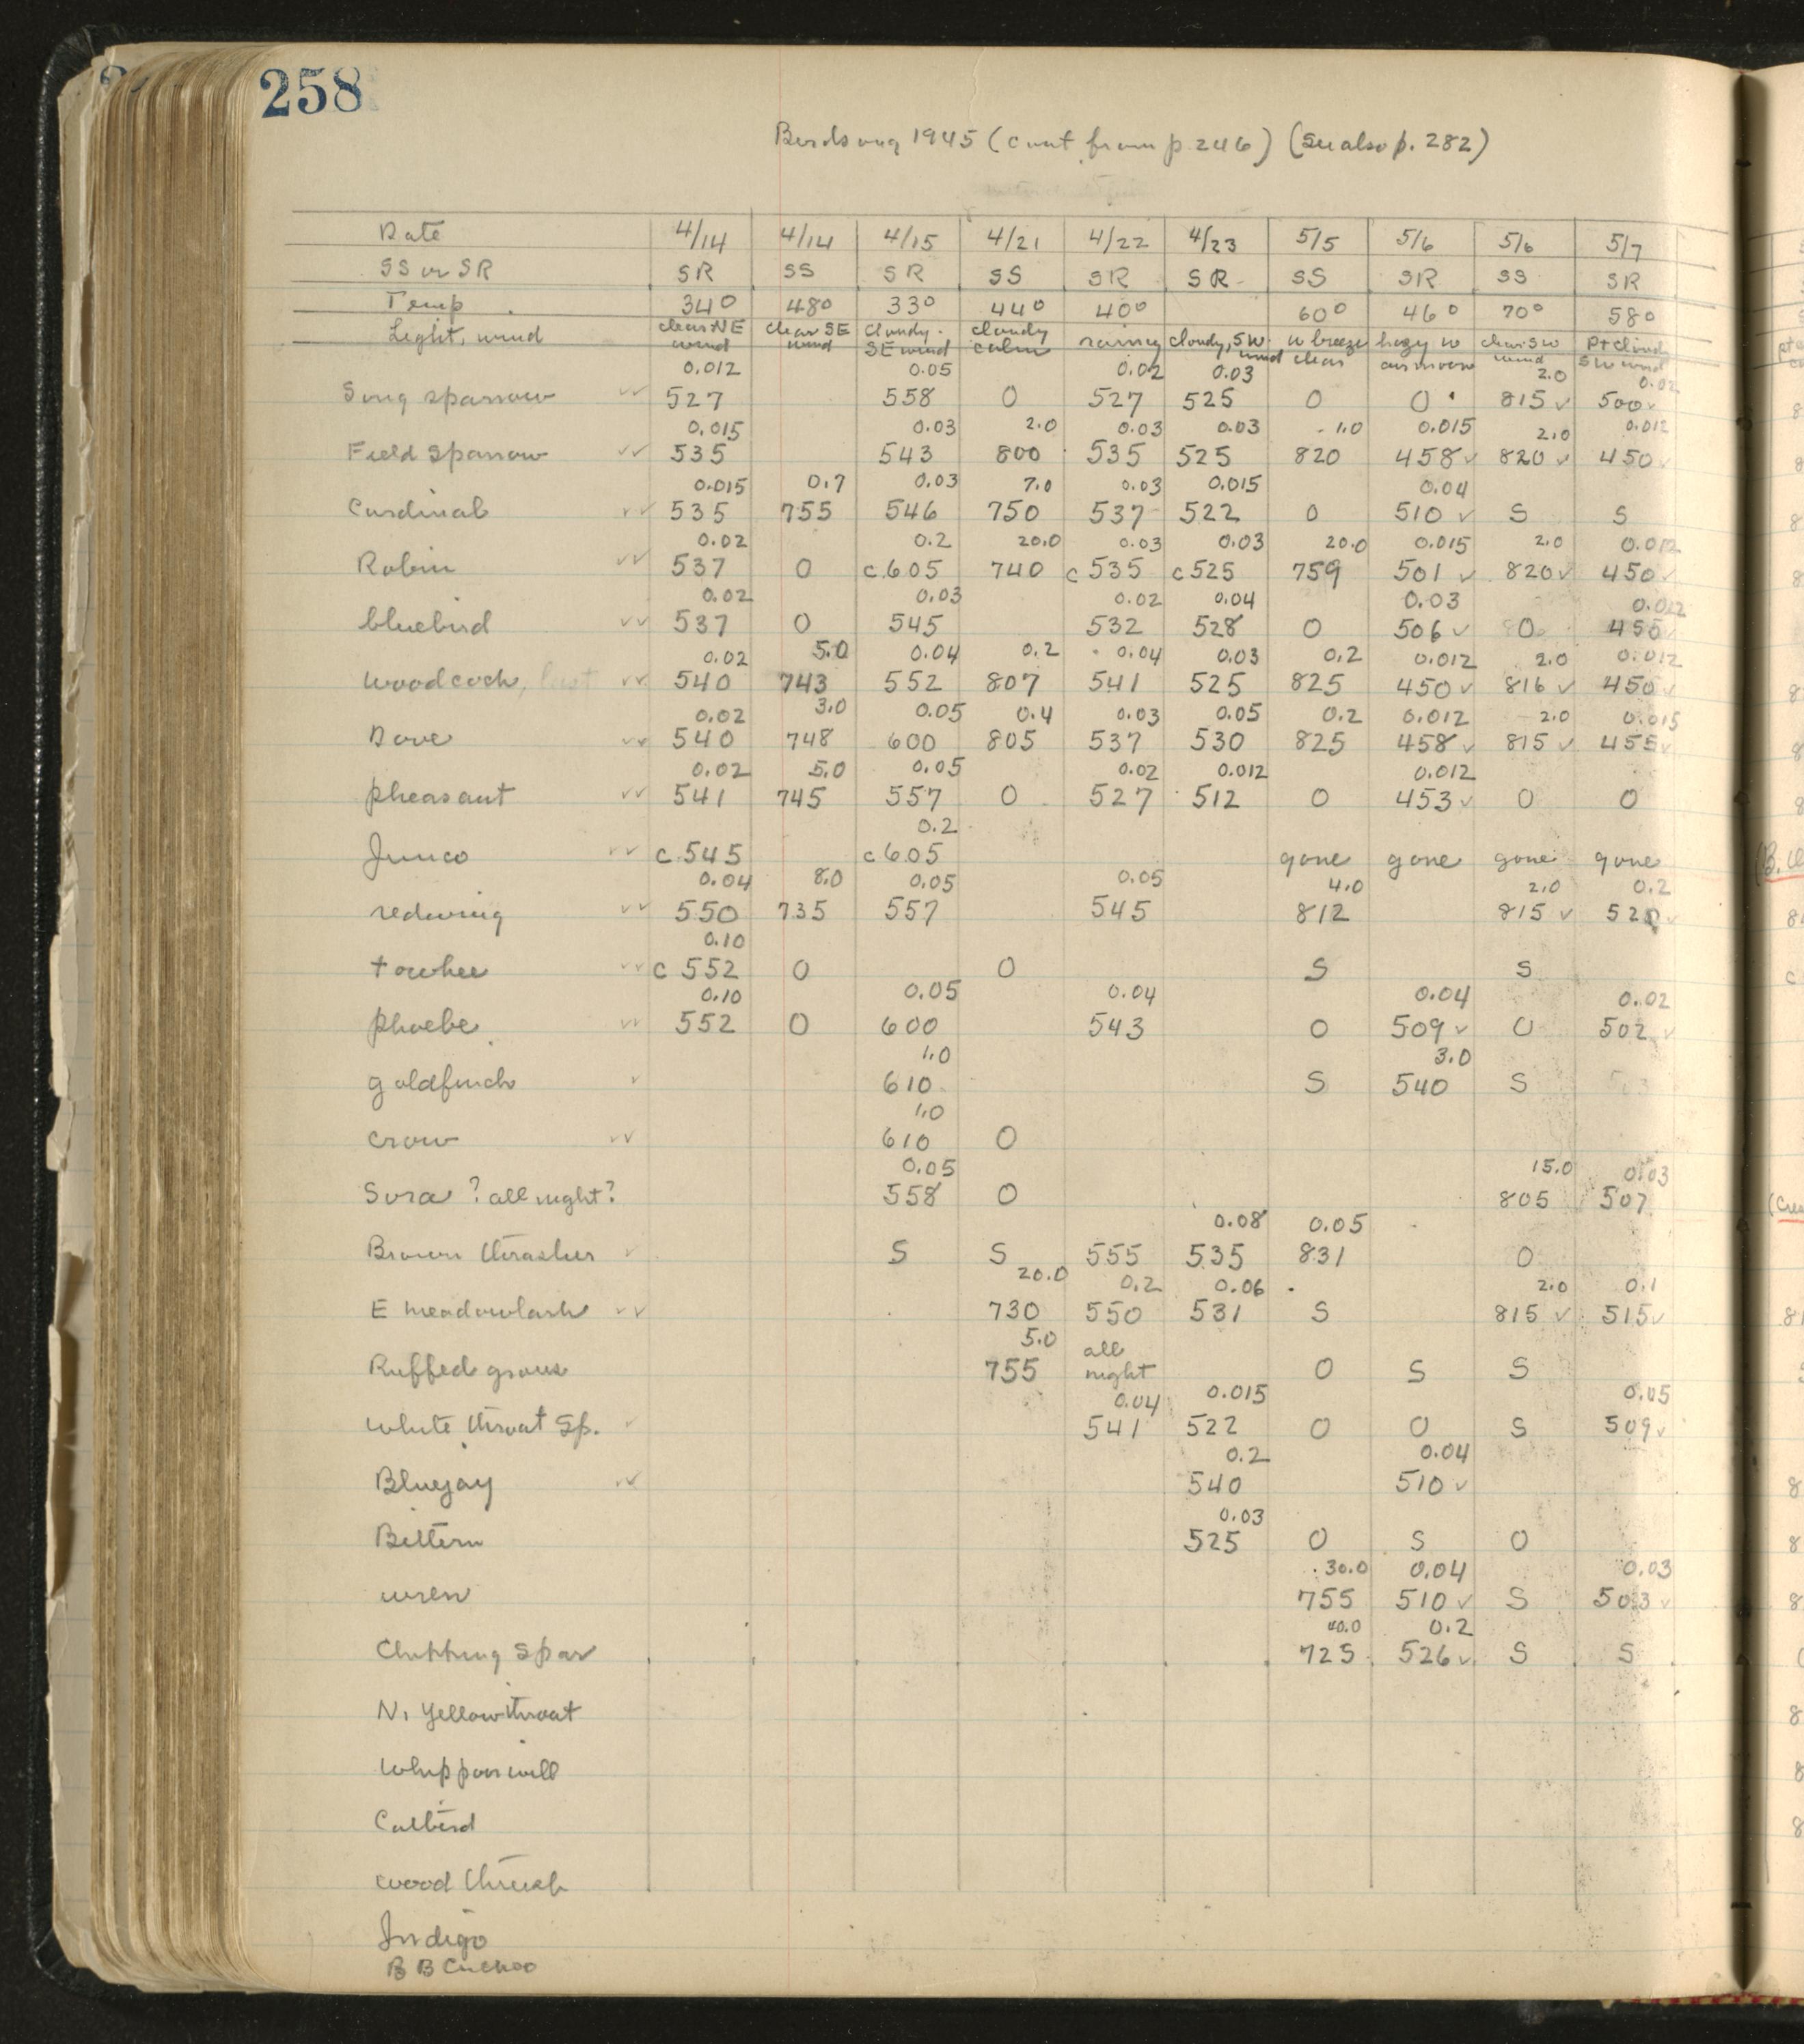 258
Birdsong 1945 (cont from p. 246) (See also p. 282)
Date 4/14 4/14 4/15 4/21 4/22 4/23 5/5 5/6 5/6 5/7
SS or SR SR SS SR SS SR SR SS SR SS SR
Temp 34° 48° 33° 44° 40° 60° 46° 70° 58°
Light, wind clear NE wind clear SE wind cloudy SE wind cloudy calm rainy cloudy, SW wind w breeze clear hazy w clear SW wind Pt cloudy SW wind
0.012 0.05 0.02 0.03 2.0 0.02
Song sparrow ✓✓ 527 558 0 527 525 0 0 815 ✓ 500 ✓
0.015 0.03 2.0 0.03 0.03 1.0 0.015 2.0 0.012
Field Sparrow ✓✓ 535 543 800 535 525 820 458 ✓ 820 ✓ 450 ✓
0.015 0.7 0.03 7.0 0.03 0.015 0.04
Cardinal ✓✓ 535 755 546 750 537 522 0 510 ✓ S S
0.02 0.2 20.0 0.03 0.03 20.0 0.015 2.0 0.012
Robin ✓✓ 537 0 c 605 740 c 535 c 525 759 501 ✓ 820 ✓ 450 ✓
0.02 0.03 0.02 0.04 0.03 0.012
bluebird ✓✓ 537 0 545 532 528 0 506 ✓ 0 450 ✓
0.02 5.0 0.04 0.2 0.04 0.03 0.2 0.012 2.0 0.012
woodcock, last ✓✓ 540 743 552 807 541 525 825 450 ✓ 816 ✓ 450 ✓
0.02 3.0 0.05 0.4 0.03 0.05 0.2 0.012 2.0 0.015
Dove ✓✓ 540 748 600 805 537 530 825 458 ✓ 815 ✓ 455 ✓
0.02 5.0 0.05 0.02 0.012 0.012
pheasant ✓✓ 541 745 557 0 527 512 0 453 ✓ 0 0
0.2
Junco ✓✓ c 545 c 605 gone gone gone gone
0.04 8.0 0.05 0.05 4.0 2.0 0.2
redwing ✓✓ 550 735 557 545 812 815 ✓ 520 ✓
0.10
towhee ✓✓ c 552 0 0 S S
0.10 0.05 0.04 0.04 0.02
phoebe ✓✓ 552 0 600 543 0 509 ✓ 0 502 ✓
1.0 3.0
goldfinch ✓ 610 S 540 S
1.0
crow ✓✓ 610 0
0.05 15.0 0.03
Sora ? all night? 558 0 805 507
0.08 0.05
Brown thrasher ✓ S S 555 535 831 0
20.0 0.2 0.06 2.0 0.1
E meadowlark ✓✓ 730 550 531 S 815 ✓ 515 ✓
5.0
Ruffed grouse 755 all night 0 S S
0.04 0.015 0.05
White throat Sp. ✓ 541 522 0 0 S 509 ✓
0.2 0.04
Bluejay ✓✓ 540 510 ✓
0.03
Bittern 525 0 S 0
30.0 0.04 0.03
wren 755 510 ✓ S 503 ✓
40.0 0.2
Chipping Spar 725 526 ✓ S S
N. Yellowthroat
Whippoorwill
Catbird
wood thrush
Indigo
B B Cuckoo